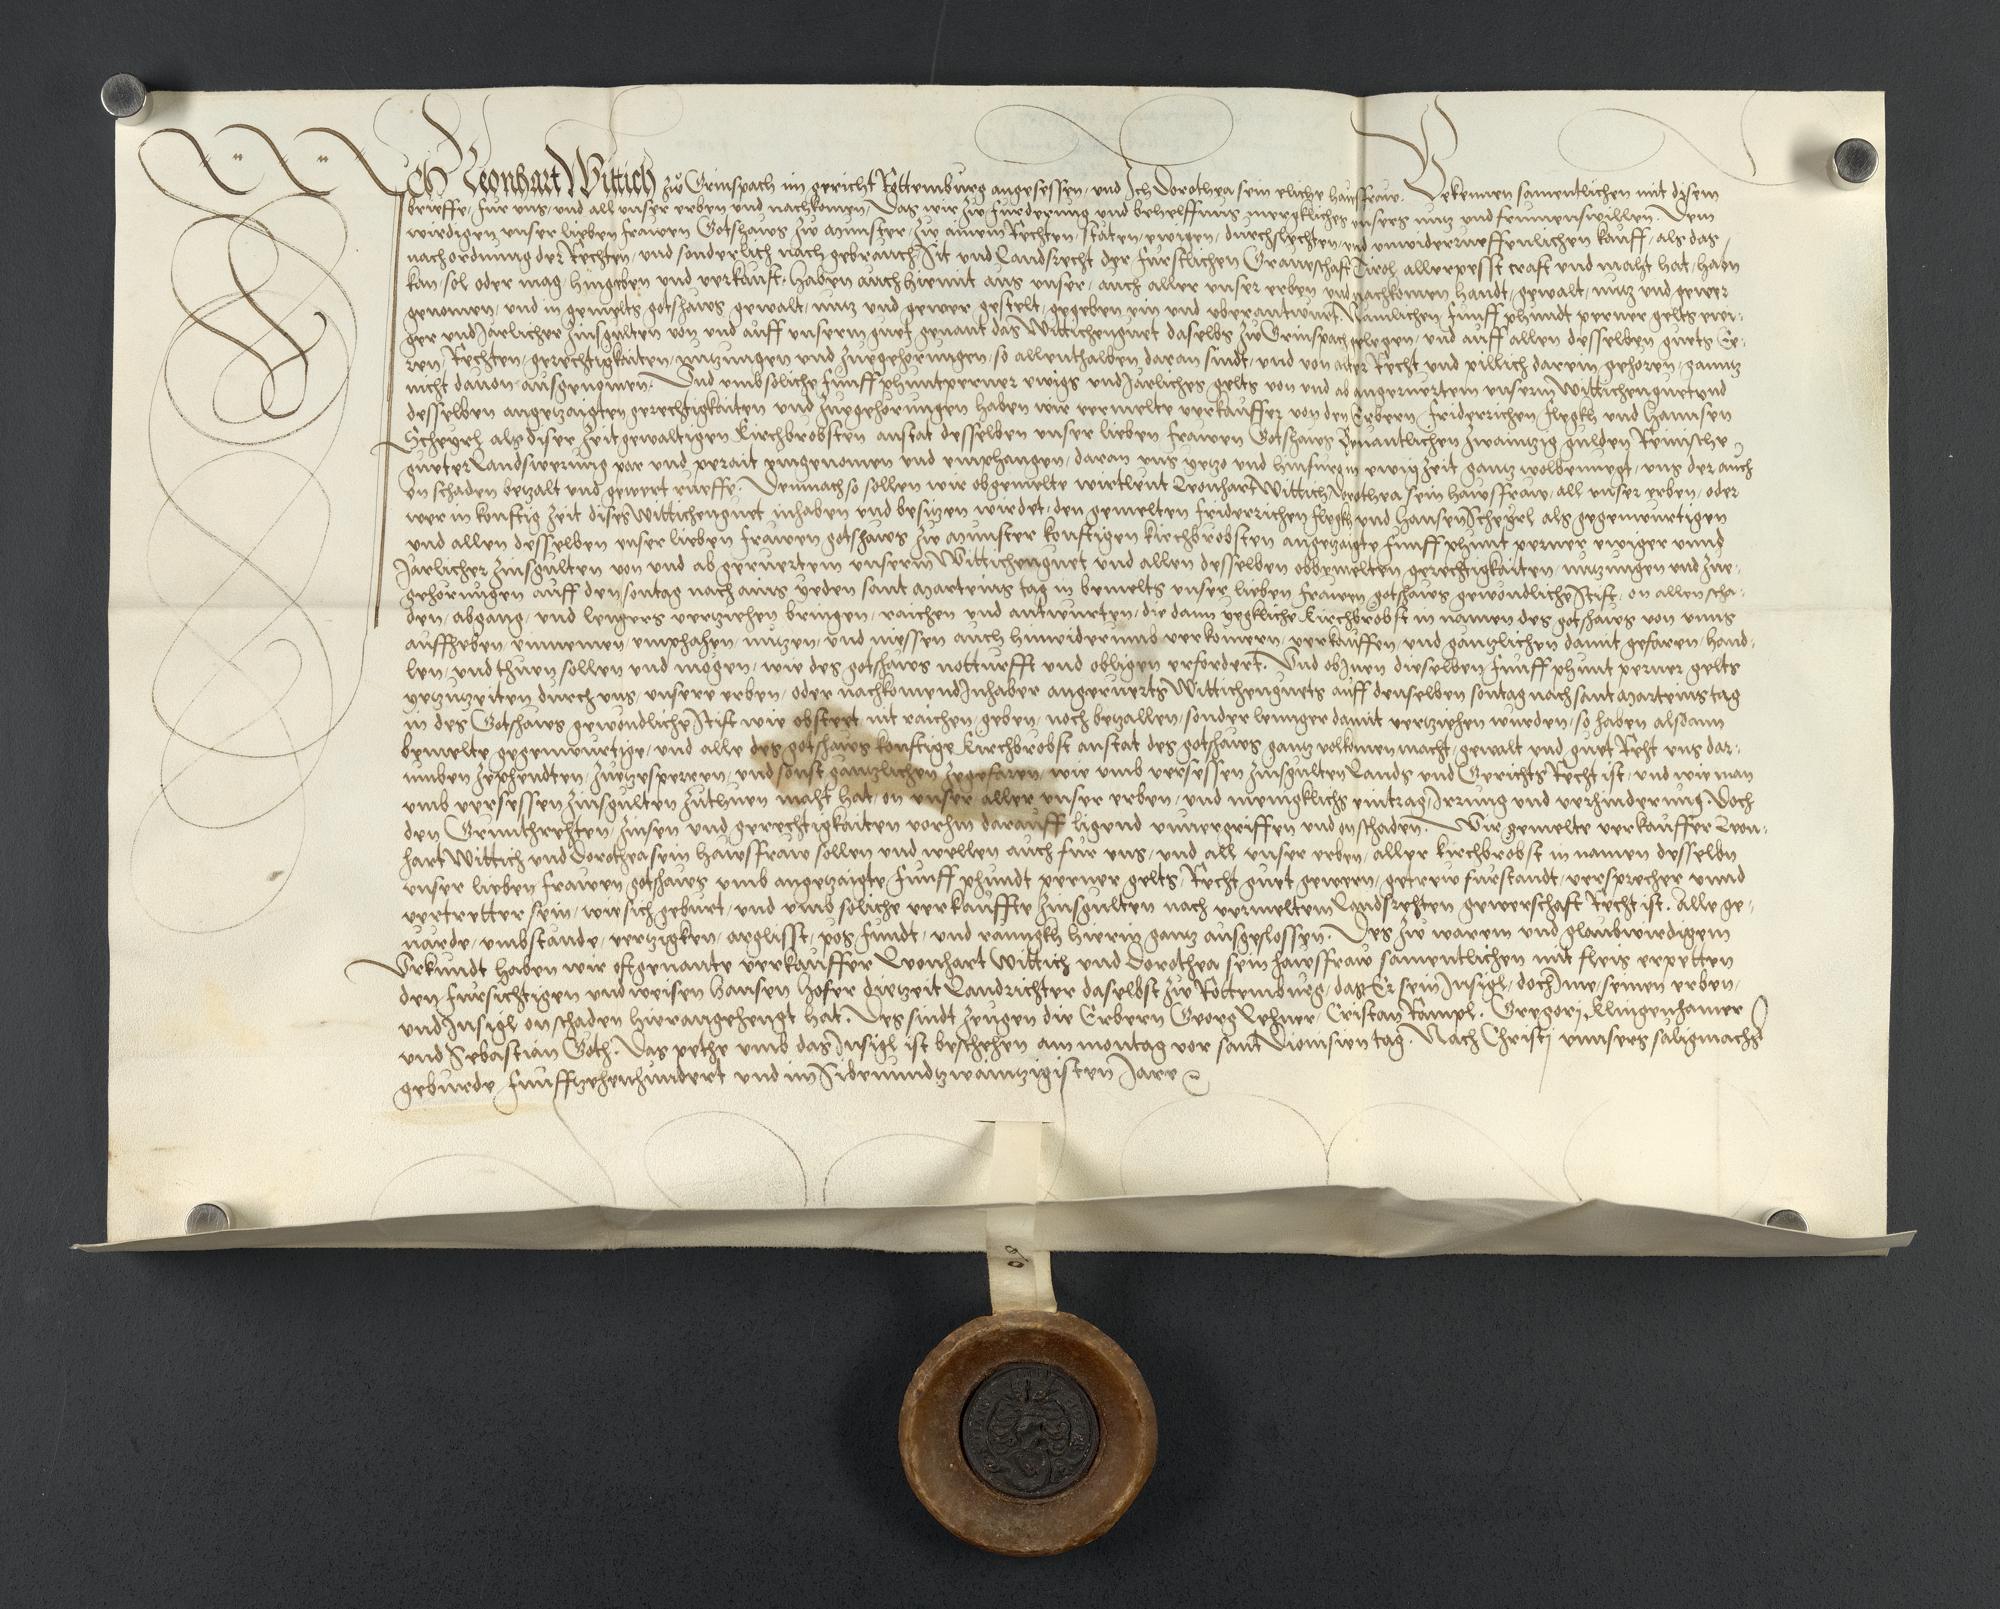 Ich Leonhart Wittich zů Grinspach im gericht Rottemburg angesessen, und Ich Dorothea sein eliche hausfraw. Bekennen samentlichen mit disem
brieffe, fur uns, und all unser erben und nachkomen, Das wir zu furderung und behelffnus mergkliches unsers nutz und frumen willen. Dem
wirdigen unser lieben frawen Gotshaws zw Munster, zw ainem Rechten, stäten, ewigen, durchslechten, und unwiderueffenlichen kauff, als das
nach ordnung der Rechten, und sonderlich nach gebrauch, Sit und Landsrecht der furstlichen Graveschafft Tirol allerpesst craft und macht hat, haben
kan, sol oder mag, hingeben und verkauft. Haben auch hiemit aus unser, auch aller unser erben und nachkomen handt, gewalt, nutz und gewer
genomen, und in gemelts gotshaws gewalt, nutz und gewer gestelt, gegeben ein und uberantwurt. Nämlichen funff phundt perner gelts ewi-
ger und Järlicher Zinsgulten von und auff unserm guet genant das Wittichenguet daselbs zů Grinspach gelegen, und auff allen desselben guets Ee-
ren, Rechten, gerechtigkaiten, nutzungen und zuegehorungen, so allenthalben daran sindt, und von alter Recht und pillich darein gehoren, ganntz
nicht davon ausgenomen. Und umb soliche funff phunt perner ewigs und Järliches gelts von und ab angeruertem unserm Wittichenguet und
desselben angetzaigten gerechtigkaiten und zuegehorungen haben wir vermelte verkauffer von den Erbern, Friderichen Flegkh und Hannsen
Scheyrl als diser Zeit gewaltigen Kirchbrobsten anstat desselben unser lieben frawen Gotshaws Benantlichen Zwaintzig gulden Reinische
gueter Landswerung par und perait eingenomen und emphangen, daran uns yetzo und hinfur in ewig Zeit gantz wolbenuegt, uns der auch
on schaden betzalt und gewert rueffe. Demnach so sollen wir obgemelte wirtleut Leonhart Wittich, Dorothea sein hawsfraw, all unser erben, oder
wer in konftig Zeit dises Wittichenguet inhaben und besitzen wirdet, den gemelten Friderrichen Flegkh und Hansen Scheyrl als gegenwurtigen
und allen desselben unser lieben frawen gotshaws zw Munster konftigen Kirchbrobsten angetzaigte funff phunt perner ewiger unnd
Järlicher Zinsgulten von und ab geruertem unserm Wittichenguet und allen desselben obbemelten gerechtigkaiten, nutzungen und zue-
gehorungen auff den sontag nach ains yeden sant Marteins tag in bemelts unser lieben frawen gotshaws gewondliche Stift, on allen scha-
den, abgang, und lengers vertziehen bringen, raichen und antwurten, die dann yegkliche Kirchbröbst in namen des gotshaws von uns
auffheben, einnemen, emphahen, nutzen, und niessen auch hinwiderumb verkomern, verkauffen, und gäntzlichen damit gefaren, hand-
len, und thuen sollen und mogen, wie des gotshaws notturfft und obligen erfordert. Und ob Inen dieselben funff phunt perner gelts
yetzutzeiten durch uns, unsere erben, oder nachkomend Inhaber angeruerts Wittichenguets auff denselben sontag nach sant Marteinstag
in des Gotshaws gewondliche Stift wie obsteet nit raichen, geben, noch betzallen, sonder lenger damit vertziehen wurden, so haben alsdann
bemelte gegenwurtige, und alle des gotshaws konftige Kirchbröbst anstat des gotshaws gantz volkomen macht, gewalt und guet Recht uns dar-
umben ze phendten, zuetzesperren, und sonst gäntzlichen ze gefaren, wie umb versessen Zinsgulten Lands und Gerichts Recht ist, und wie man
umb versessen Zinsgulten zuthuen macht hat, on unser aller unser erben, und menigklichs eintrag, Irrung und verhinderung. Doch
den Grunthrechten, Zinsen und gerechtigkaiten vorhin darauff ligend unvergriffen und on schaden. Wir gemelte verkauffer Leon-
hart Wittich und Dorothea sein hawsfraw sollen und wellen auch fur uns, und all unser erben, aller kirchbröbst in namen desselbn
unser lieben frawen gotshaws umb angetzaigte funff phundt perner gelts, Recht guet gewern, getrew furstandt, versprecher unnd
vertretter sein, wie sich geburt, und umb soliche verkauffte Zinsgulten nach vermeltem Landsrechten gewerschaft Recht ist. Alle ge-
värde, umbstande, vertzigken, arglisst, pös fundt, und rannigkh hierin gantz ausgeslossen. Des zw warem und glaubwirdigem
Urkundt haben wir oftgenante verkauffer Leonhart Wittich und Dorothea sein hawsfraw samentlichen mit fleis erpetten
den fursichtigen und weisen Hansen Hofer dietzeit Landrichter daselbst zw Rottemburg, das Er sein Insigl, doch Ime, seinen erben,
und Insigl on schaden hieran gehengt hat. Des sindt Zeugen die Erbern Georg Lehner, Cristan Rämpl. Gregorj Klingenhamer
und Sebastian Göth. Das pethe umb das Insigl ist beschehen am montag vor sant Dionisien tag. Nach Christj unnsers säligmachers
geburde funfftzehenhundert und im Sibenundtzwaintzigisten Jare